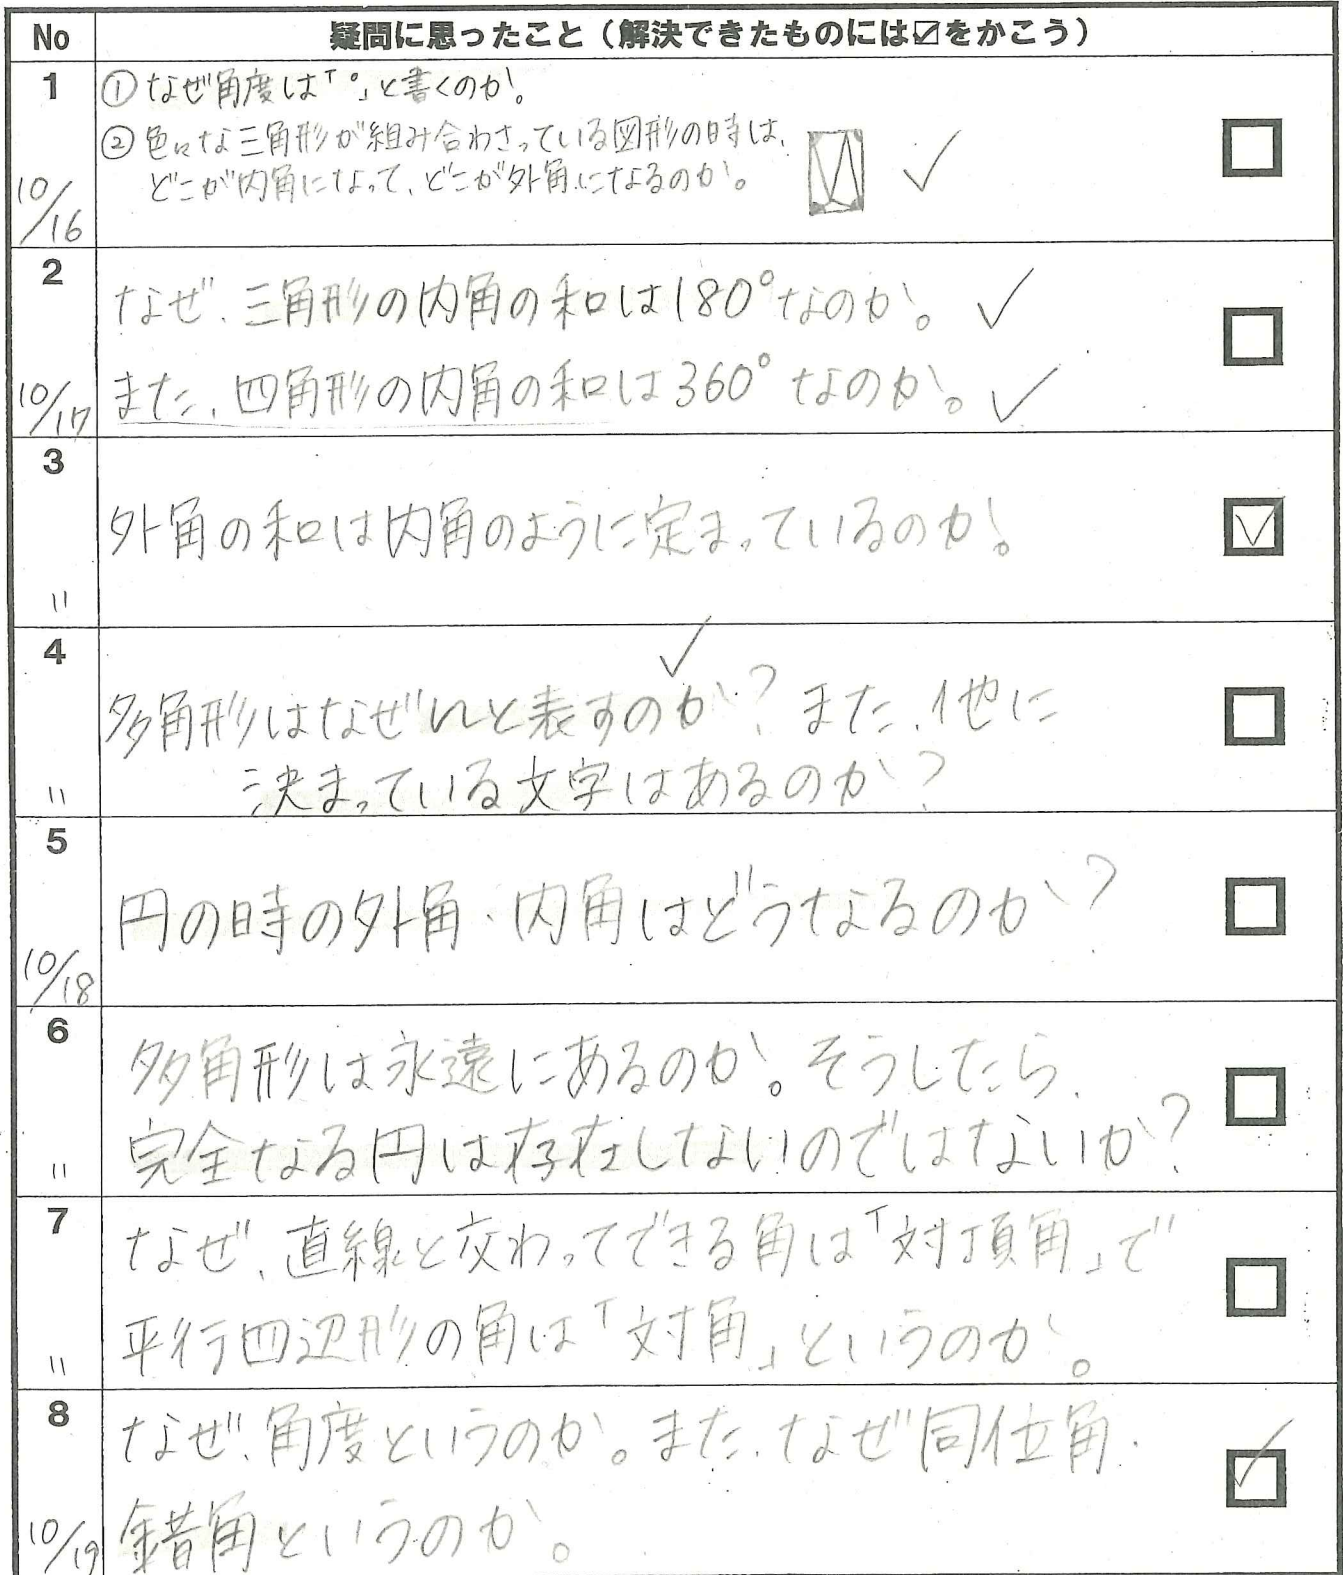 No 疑問に思ったこと（解決できたものには☑をかこう）
1 ①なぜ角度は「°」と書くのか。
②色々な三角形が組み合わさっている図形の時は、
どこが内角になって、どこが外角になるのか。 ✓
10/16
2
なぜ、三角形の内角の和は180°なのか。 ✓
また、四角形の内角の和は360°なのか。 ✓
10/17
3
外角の和は内角のように定まっているのか。
〃
4
多角形はなぜnと表すのか？また、他に
決まっている文字はあるのか？
〃
5
円の時の外角・内角はどうなるのか？
10/18
6
多角形は永遠にあるのか。そうしたら、
完全なる円は存在しないのではないか？
〃
7
なぜ、直線と交わってできる角は「対頂角」で
平行四辺形の角は「対角」というのか。
〃
8
なぜ、角度というのか。また、なぜ同位角・
錯角というのか。
10/19